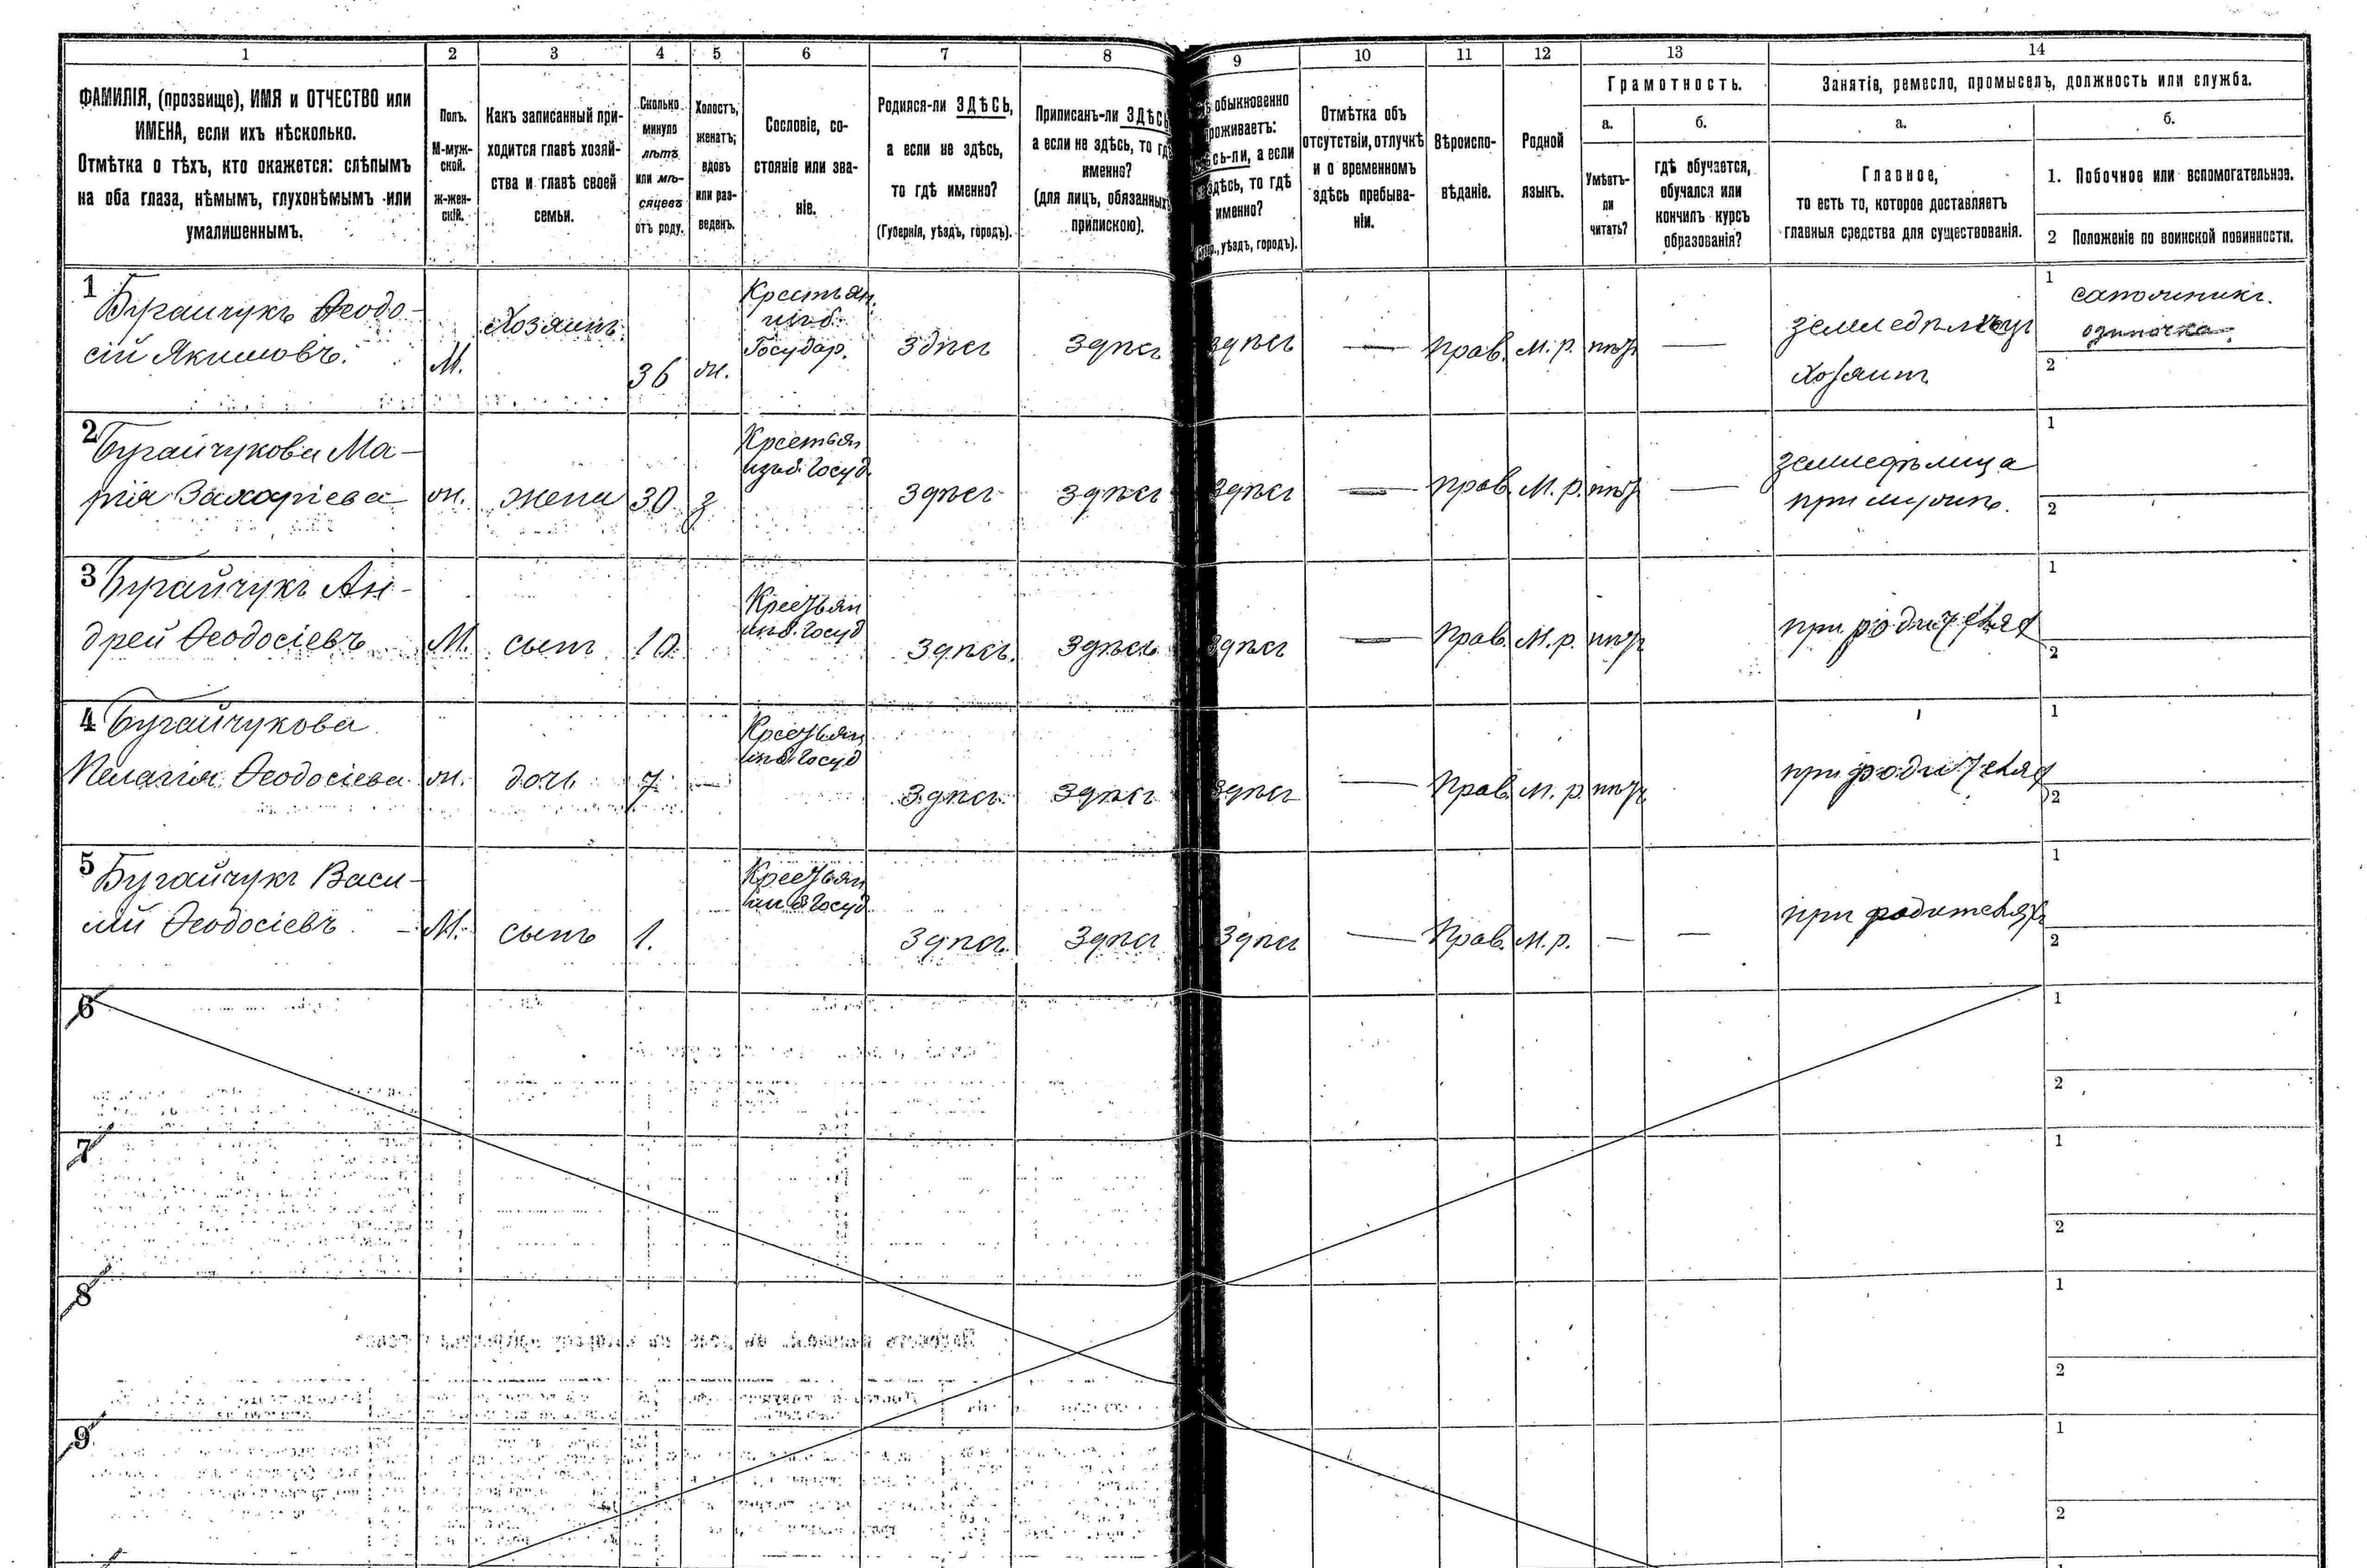 1
2
3
4
5
6
7
8
9
10
11
12
13
14
ФАМИЛІЯ, (прозвище), ИМЯ и ОТЧЕСТВО или
ИМЕНА, если ихъ нѣсколько.
Отмѣтка о тѣхъ, кто окажется: слѣпымъ
на оба глаза, нѣмымъ, глухонѣмымъ или
умалишеннымъ.
Полъ.
М-муж-
ской.
ж-жен-
скій.
Какъ записанный при-
ходится главѣ хозяй-
ства и главѣ своей
семьи.
Сколько
минуло
лѣтъ
или мѣ-
сяцевъ
отъ роду.
Холостъ,
женатъ,
вдовъ
или раз-
веденъ.
Сословіе, со-
стояніе или зва-
ніе.
Родился-ли ЗДѢСЬ,
а если не здѣсь,
то гдѣ именно?
(Губернія, уѣздъ, городъ).
Приписанъ-ли ЗДѢСЬ
а если не здѣсь, то гдѣ
именно?
(для лицъ, обязанныхъ
припискою).
обыкновенно
роживаетъ:
сь-ли, а если
здѣсь, то гдѣ
именно?
уѣздъ, городъ).
Отмѣтка объ
отсутствіи, отлучкѣ
и о временномъ
здѣсь пребыва-
ніи.
Вѣроиспо-
вѣданіе.
Родной
языкъ.
Грамотность.
а.
Умѣетъ-
ли
читать?
б.
гдѣ обучается,
обучался или
кончилъ курсъ
образованія?
Занятіе, ремесло, промыселъ, должность или служба.
а.
Главное,
то есть то, которое доставляетъ
главныя средства для существованія.
б.
1. Побочное или вспомогательное.
2 Положеніе по воинской повинности.
1
Бугаичукъ Ѳеодо-
сій Якимовъ.
М.
Хозяинъ
36
ж.
Крестьян.
изъ б.
Государ.
Здѣсь
Здѣсь
Здѣсь
—
Прав.
М. р.
нѣтъ
—
земледѣлецъ
Хозяинъ
1
сапожникъ.
одиночка.
2
2
Бугайчукова Ма-
рія Захаріева
ж.
жена
30
з
Крестьян
изъ б. Госуд.
Здѣсь
Здѣсь
Здѣсь
—
Прав.
М. р.
нѣтъ
—
земледѣлица
при мужѣ.
1
2
3
Бугайчукъ Ан-
дрей Ѳеодосіевъ
М.
сынъ
10
Крестьян
изъ б. Госуд
Здѣсь.
Здѣсь
Здѣсь
—
Прав.
М. р.
нѣтъ
при родителяхъ
1
2
4
Бугайчукова
Пелагія Ѳеодосіева
ж.
дочь
7
—
Крестьян
изъ б. Госуд
Здѣсь
Здѣсь
Здѣсь
—
Прав.
М. р.
нѣтъ
при родителяхъ
1
2
5
Бугайчукъ Васи-
лій Ѳеодосіевъ
М.
сынъ
1.
Крестьян
изъ б. Госуд
Здѣсь
Здѣсь
Здѣсь
—
Прав.
М. р.
—
—
при родителяхъ
1
2
6
1
2
7
1
2
8
1
2
9
1
2